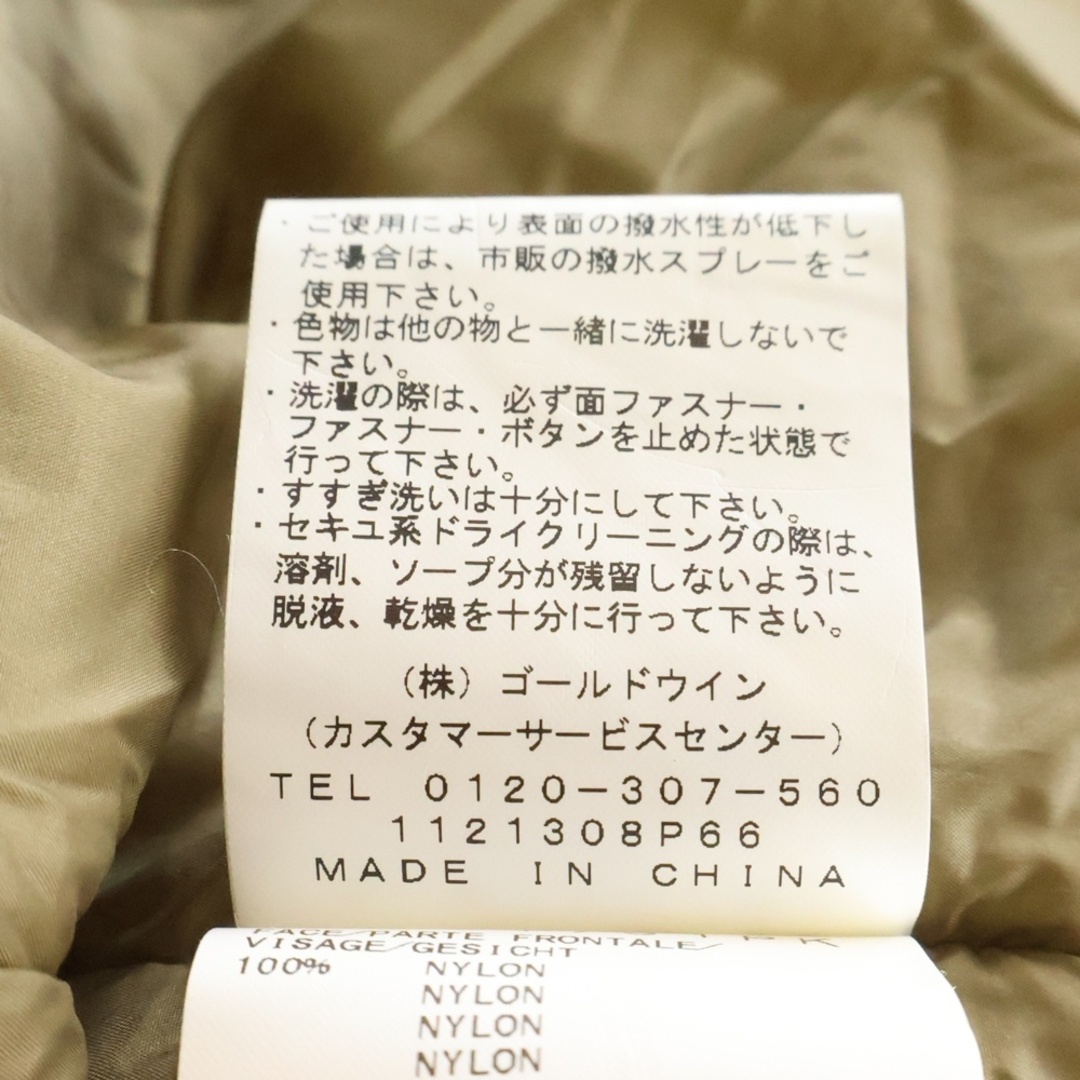 ・ご使用により表面の撥水性が低下し
た場合は、市販の撥水スプレーをご
使用下さい。
・色物は他の物と一緒に洗濯しないで
下さい。
・洗濯の際は、必ず面ファスナー・
ファスナー・ボタンを止めた状態で
行って下さい。
・すすぎ洗いは十分にして下さい。
・セキユ系ドライクリーニングの際は、
溶剤、ソープ分が残留しないように
脱液、乾燥を十分に行って下さい。
(株)ゴールドウイン
(カスタマーサービスセンター)
TEL 0120-307-560
1121308P66
MADE IN CHINA
FACE/PARTE FRONTALE/
VISAGE/GESICHT
100% NYLON
NYLON
NYLON
NYLON